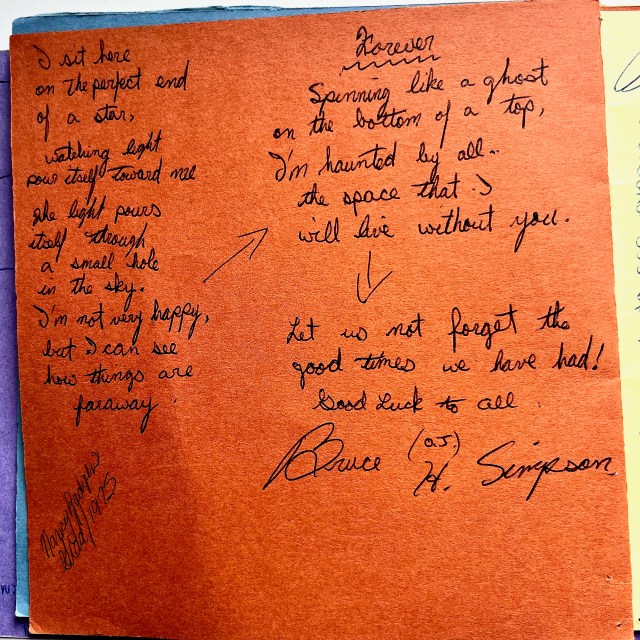 I sit here
on the perfect end
of a star,
watching light
pour itself toward me
The light pours
itself through
a small hole
in the sky.
I'm not very happy,
but I can see
how things are
faraway.
1975
Forever
Spinning like a ghost
on the bottom of a top,
I'm haunted by all..
the space that I
will live without you.
Let us not forget the
good times we have had!
Good Luck to all
Bruce (O.J.) H. Simpson